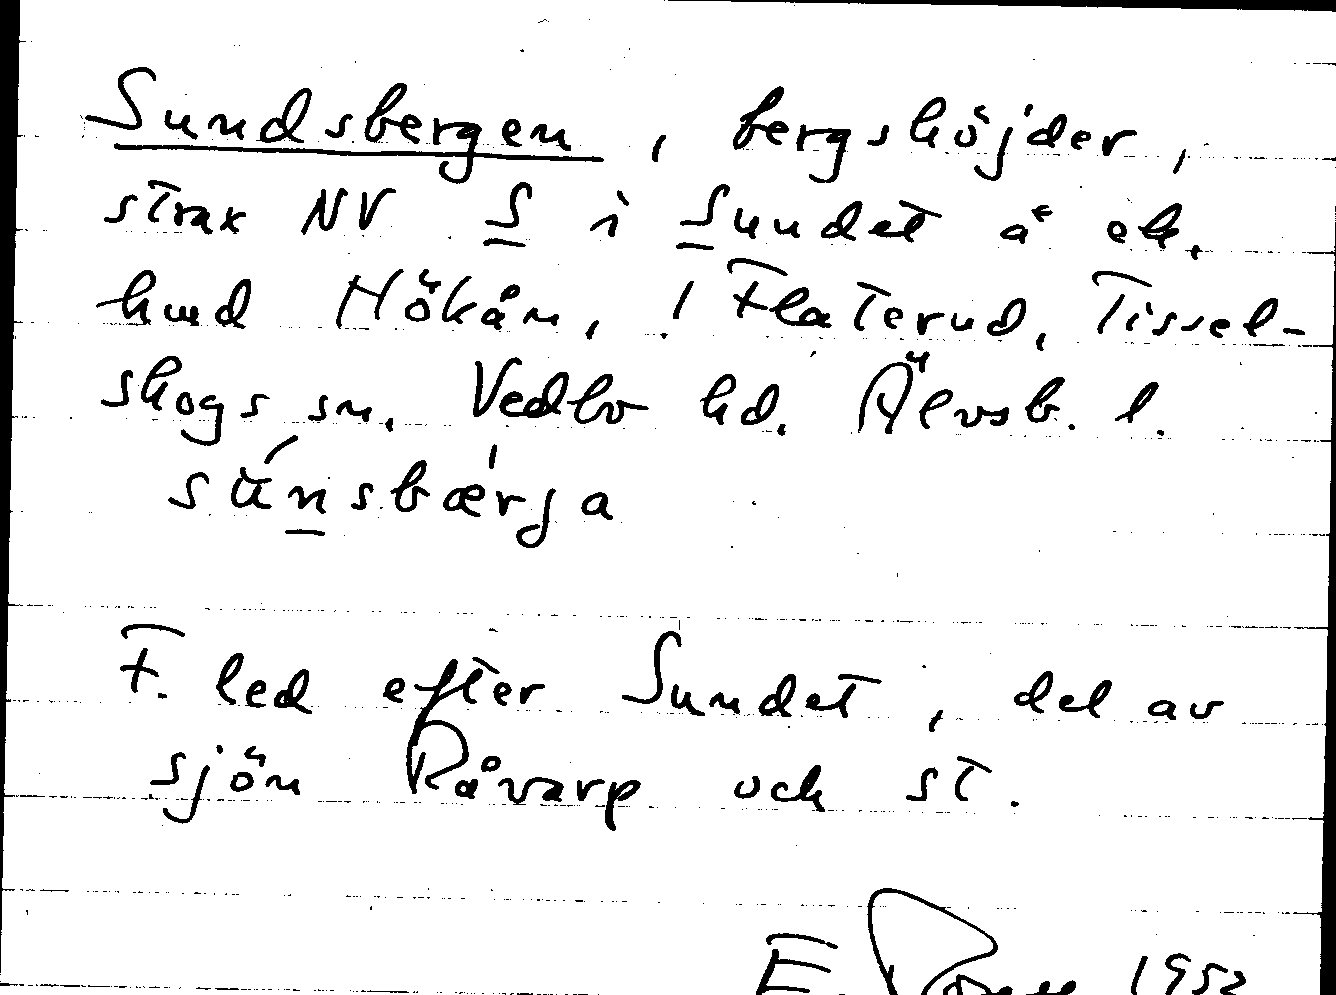 Sundsbergen, bergshöjder,
strax NV S i Sundet å ek.
kmd Hökån, 1 Flaterud, Tissel-
skogs sn. Vedbo hd. Älvsb. l.
sú̈nsbærja
F. led efter Sundet, del av
sjön Råvarp och st.
E. 1952